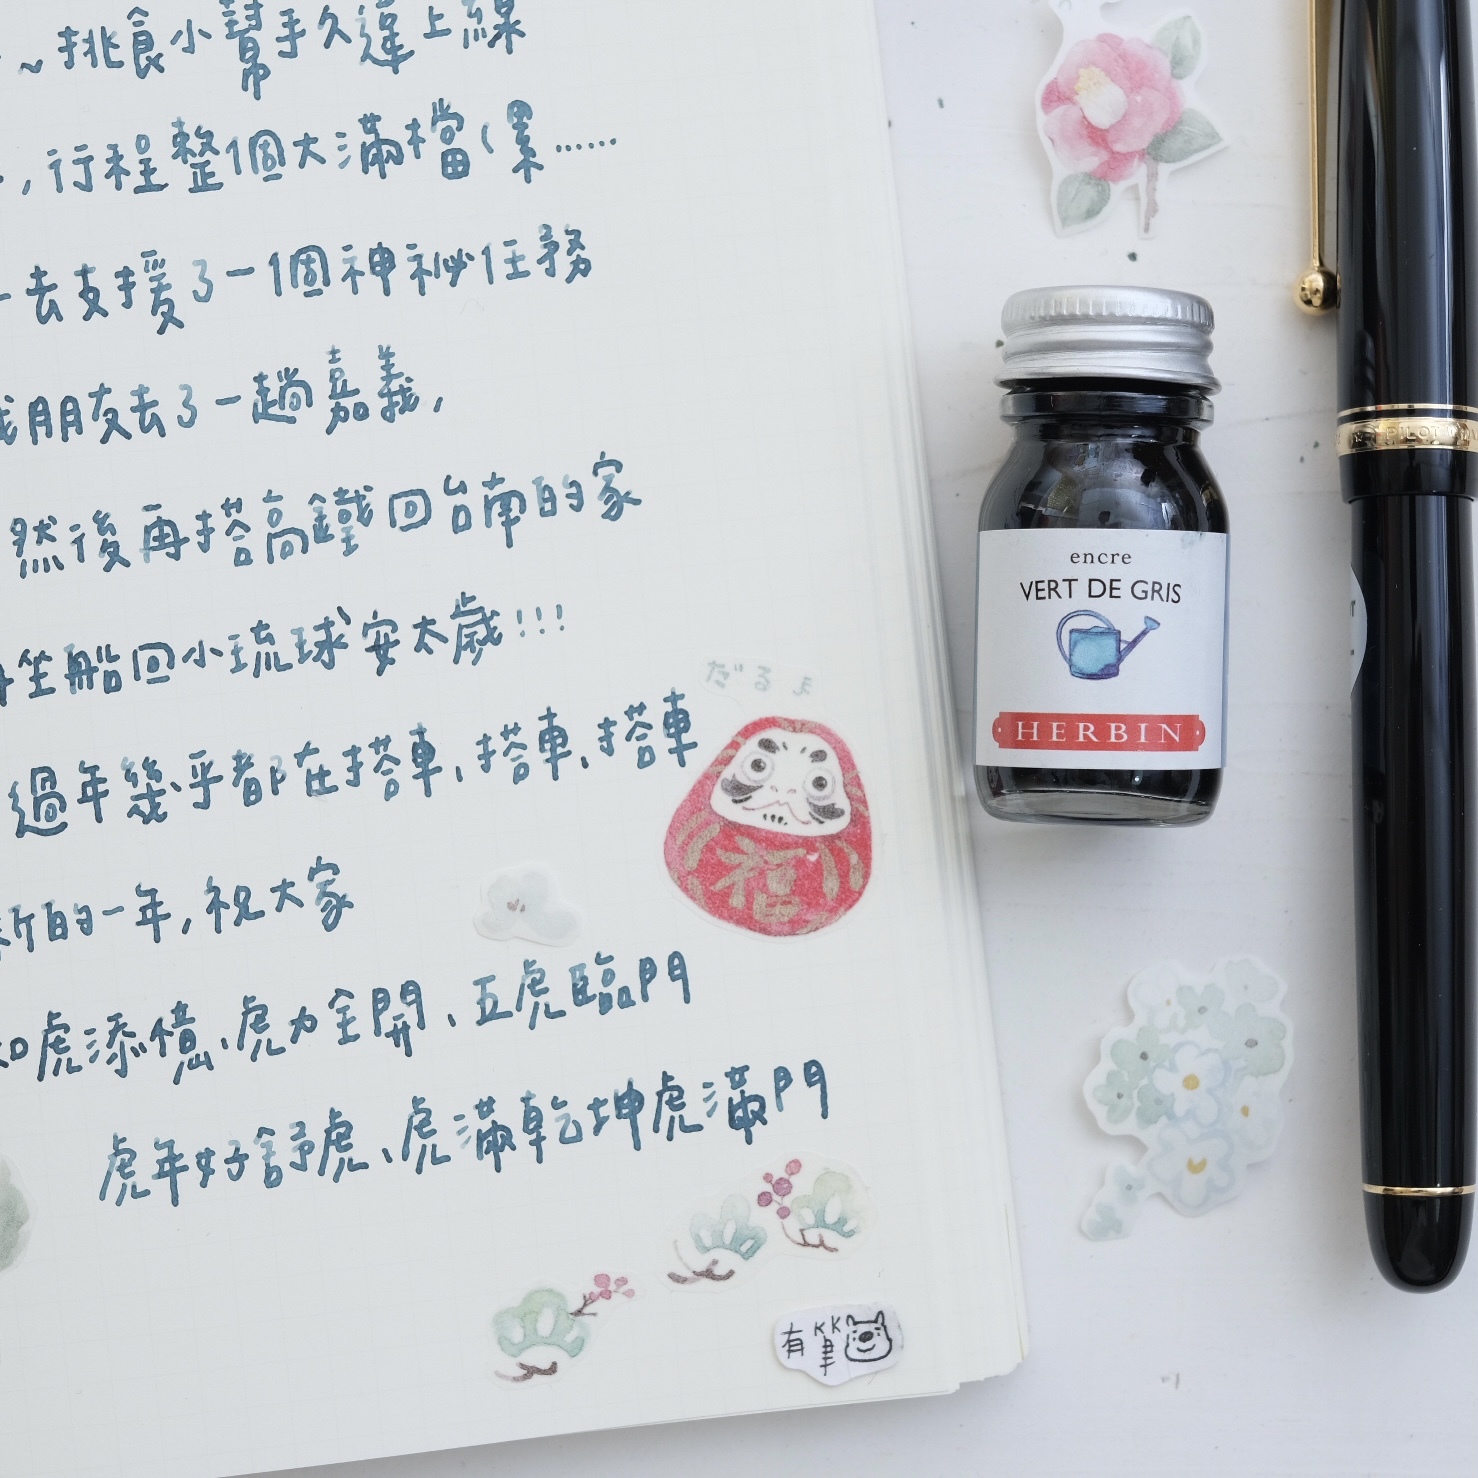 ~挑食小幫手久違上線
,行程整個大滿檔(累……
去支援了一個神祕任務
我朋友去了一趟嘉義,
然後再搭高鐵回台南的家
再坐船回小琉球安太歲!!!
過年幾乎都在搭車、搭車、搭車
新的一年,祝大家
如虎添億、虎力全開、五虎臨門
虎年好舒虎、虎滿乾坤虎滿門
だるま
福
有筆
encre
VERT DE GRIS
HERBIN
PILOT